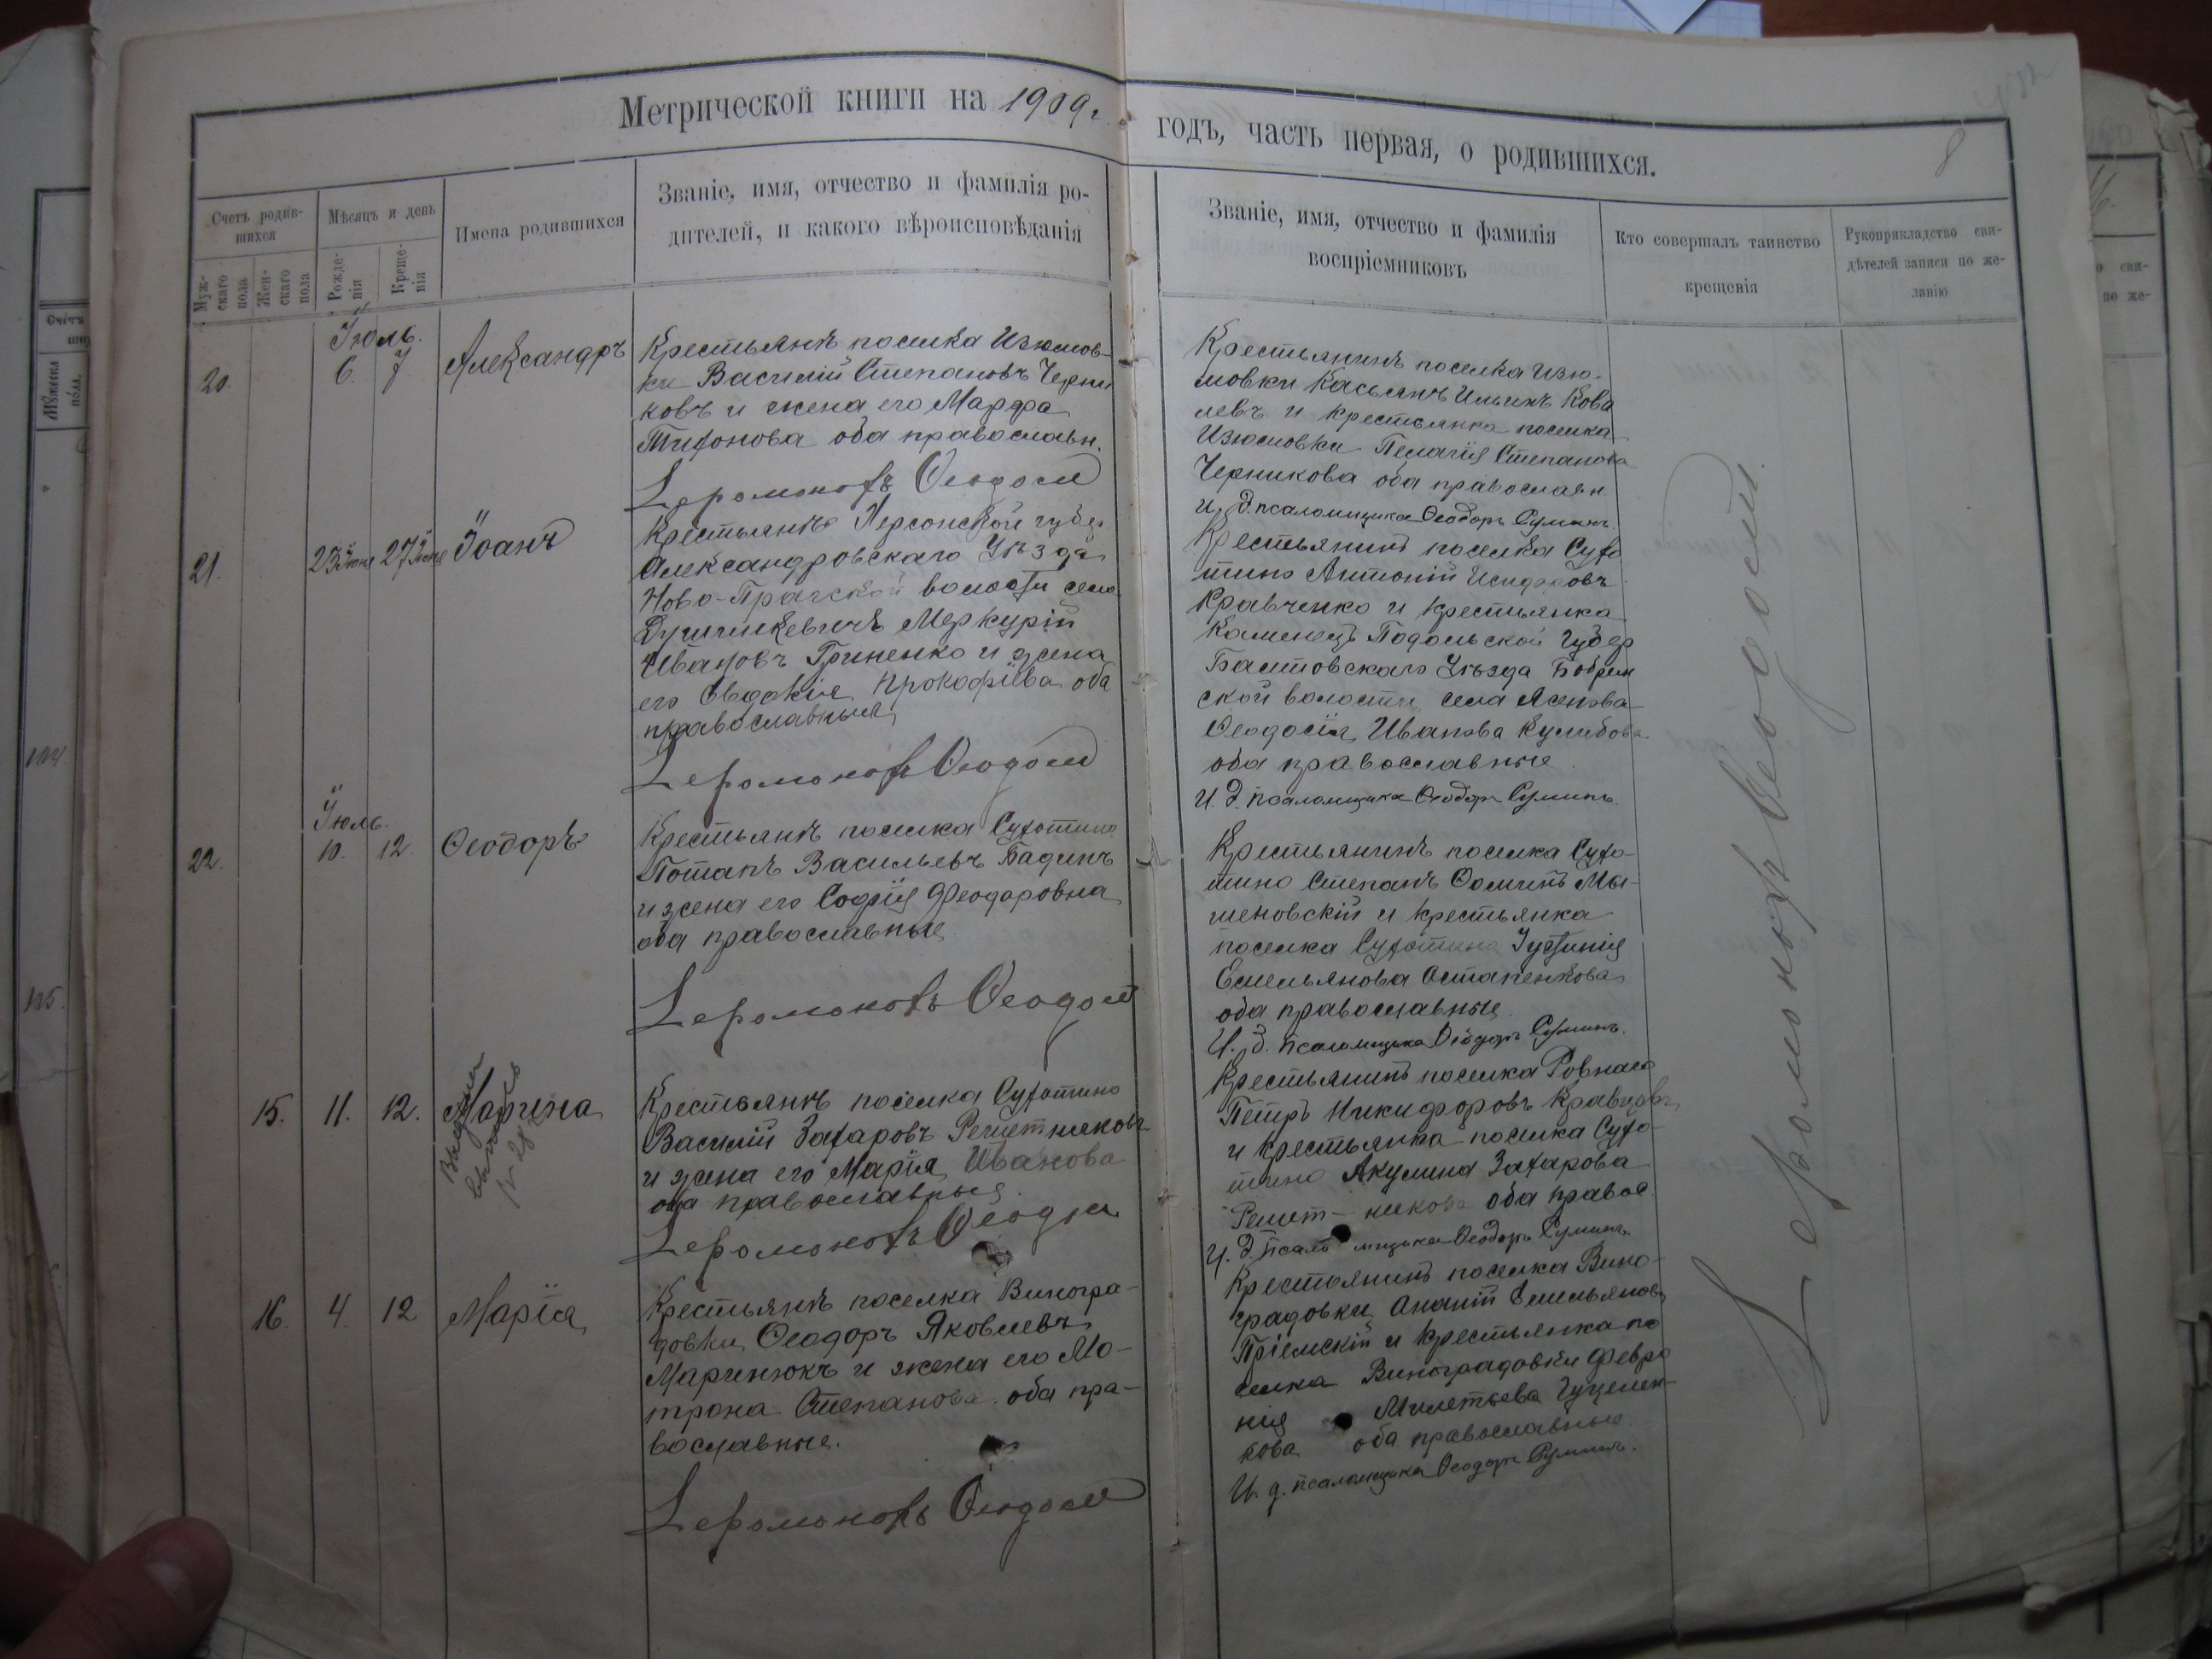 Метрической книги на 1909 г.
годъ, часть первая, о родившихся.
8
Счетъ родив-
шихся
Мѣсяцъ и день
Имена родившихся
Званіе, имя, отчество и фамилія ро-
дителей, и какого вѣроисповѣданія
Муж-
скаго
пола
Жен-
скаго
пола
Рожде-
нія
Креще-
нія
Званіе, имя, отчество и фамилія
воспріемниковъ
Кто совершалъ таинство
крещенія
Рукоприкладство сви-
дѣтелей записи по же-
ланію
Іюль.
20. 6. 7 Александръ
Крестьянъ поселка Изюмов-
ки Василій Степановъ Черни
ковъ и жена его Марфа
Тихонова оба православн.
Іеромонахъ Ѳеодосій
Крестьянинъ поселка Изю-
мовки Касьянъ Ильинъ Кова
левъ и крестьянка поселка
Изюмовки Пелагія Степанова
Черникова оба православн
И. д. псаломщика Ѳеодоръ Суминъ.
21. 23 Іюня 27 Іюня Іоанъ
Крестьянъ Херсонской губер
Александровскаго Уѣзда
Ново-Прагской волости села
Меркурій
Ивановъ Гриненко и жена
его Евдокія Прокофіева оба
православныя
Іеромонахъ Ѳеодосій
Крестьянинъ поселка Сухо
тино Антоній Исидоровъ
Кравченко и крестьянка
Каменецъ Подольской Губер
Уѣзда
ской волости села
Ѳеодосія Иванова
оба православные.
И. д. псаломщика Ѳеодоръ Суминъ.
Іюль.
22. 10. 12. Ѳеодоръ
Крестьянъ поселка Сухотино
Потапъ Васильевъ Бадинъ
и жена его Софія Феодоровна
оба православные
Іеромонахъ Ѳеодосій
Крестьянинъ поселка Сухо-
тино Степанъ Ѳоминъ Мы-
шеновскій и крестьянка
поселка Сухотино Іустинія
Емельянова Остапенкова
оба православные.
И. д. псаломщика Ѳеодоръ Суминъ.
15. 11. 12. Марина
Крестьянъ поселка Сухотино
Василій Захаровъ Решетниковъ
и жена его Марія Иванова
оба православныя.
Іеромонахъ Ѳеодосій
Крестьянинъ поселка Ровнаго
Петръ Никифоровъ Кравцовъ
и крестьянка поселка Сухо-
тино Акулина Захарова
Решет-никова оба правос.
И. д. псаломщика Ѳеодоръ Суминъ.
16. 4. 12 Марія
Крестьянъ поселка Виногра-
довки Ѳеодоръ Яковлевъ
Маринюкъ и жена его Мо-
трона Степанова. оба пра-
вославные.
Іеромонахъ Ѳеодосій
Крестьянинъ поселка Вино-
градовки Ананій Емельяновъ
Пріемскій и крестьянка по
селка Виноградовки Февро
нія Милетьева
кова оба православные.
И. д. псаломщика Ѳеодоръ Суминъ.
Іеромонахъ Ѳеодосій